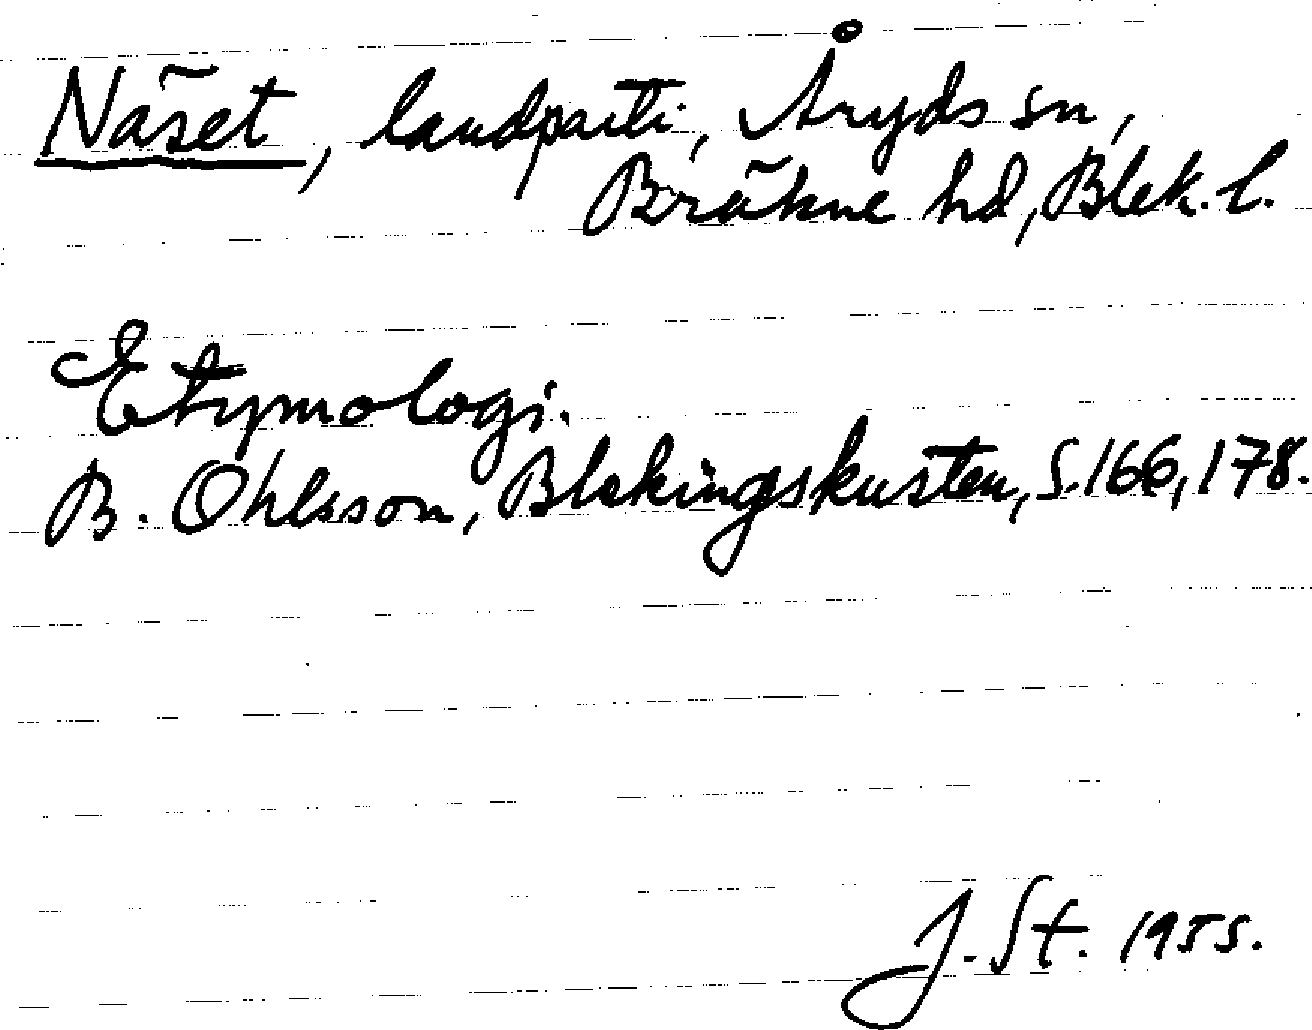 Näset, landparti, Åryds sn,
Bräkne hd, Blek. l.
Etymologi.
B. Ohlsson, Blekingskusten, s. 166, 178.
J. St. 1955.